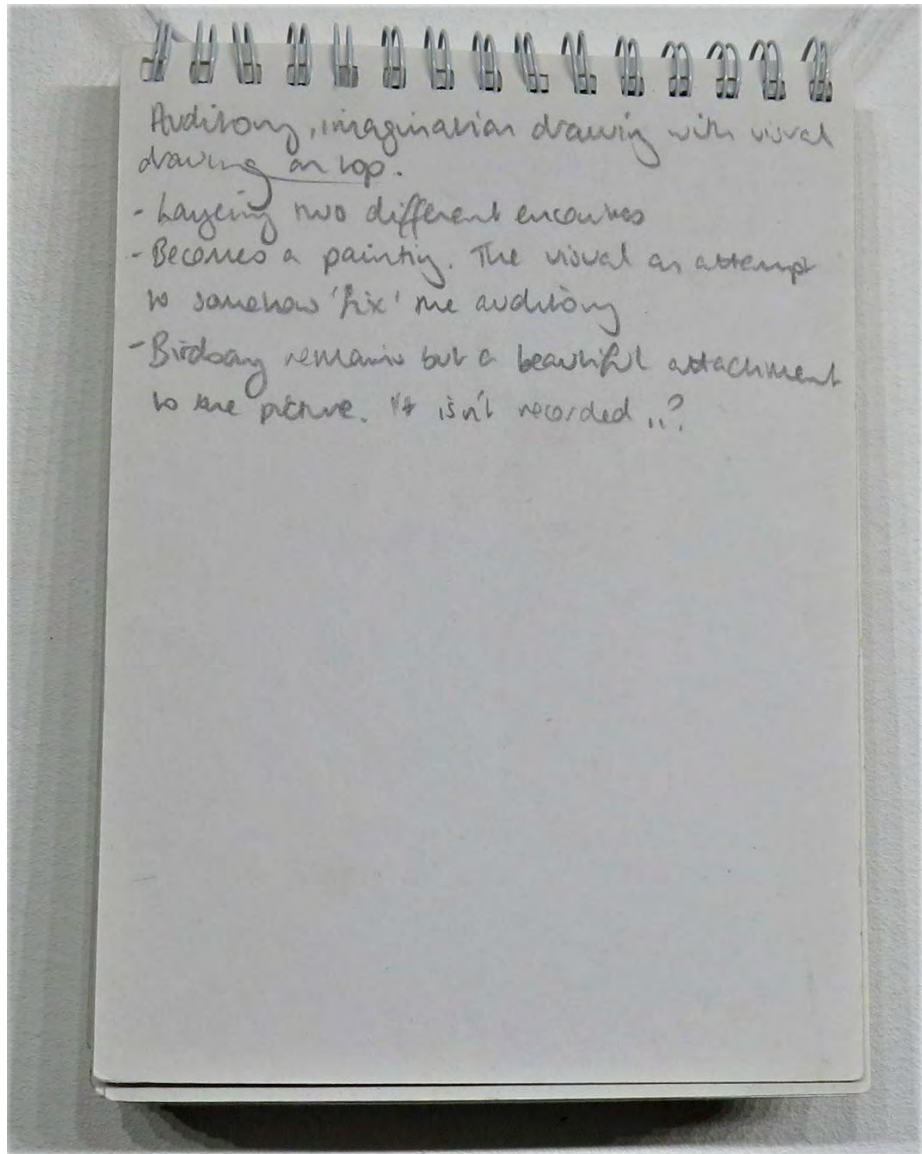 Auditory, imagination drawing with visual
drawing on top.
- Layering two different encounters
- Becomes a painting. The visual an attempt
to somehow 'fix' the auditory
- Birdsong remains but a beautiful attachment
to the picture. It isn't recorded ..?